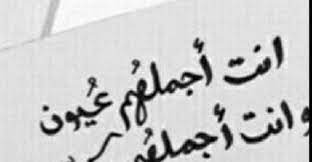 انت أجملهُم عُيون
وانت أجملهُم